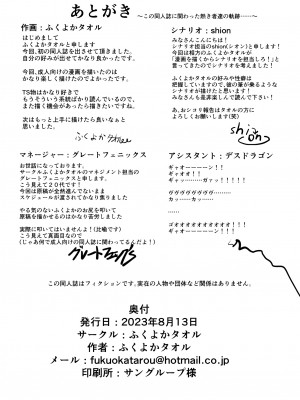 あとがき
〜この同人誌に関わった熱き者達の軌跡〜
作画：ふくよかタオル
はじめまして
ふくよかタオルと申します
今回、初の同人誌を出させて頂きました。
自分の好みが出せてかなり良かったです。
今回、成人向けの漫画を描いたのは
かなり楽しく描けたのでよかったです。
TS物はかなり好きで
もうそういう系統ばかり読んでいるので、
また描く機会があったら描きたいですね。
次はもっと上手に描けたら良いなぁと
思いました。
ふくよかタオル
シナリオ：shion
みなさんこんにちは！
シナリオ担当のshion(シオン)と申します！
今回は相方のふくよかタオルが
「漫画を描くからシナリオを担当しろ！」と
言ってきたのでシナリオを考えました！
ふくよかタオルの好みや性癖は
把握していますので、彼の筆が乗るような
シナリオが描けたと思います！
みなさんも是非楽しんで読んで下さい！
あ、おシコり報告はタオルの方に
よろしくお願いします(笑)
shion
マネージャー：グレートフェニックス
お世話になっております。
サークルふくよかタオルのマネジメント担当の
グレートフェニックスと申します。
こう見えて２０代です！
今回は原稿が全然進んでないまま
スケジュールが遅されてかなり焦りました
やる気のないふくよかのお尻を叩いて
原稿を描かせるのはかなり苦労しました
実際に叩いてはいませんよ！(比喩です)
こう見えて真面目なので
(じゃあ何で成人向けの同人誌に関わってるんだよ！)
グレートフェニックス
アシスタント：デスドラゴン
ギャオーーーーーン！！
ギャオオ！！
ギャッ………ガァッ！！！！！
ヴヴヴヴヴヴヴ………
カッ……カッ……
……
ゴオオオオオオオオオオオオ！！
ギャオーーーーーン！！
この同人誌はフィクションです。実在の人物や団体など関係はありません。
奥付
発行日：2023年8月13日
サークル：ふくよかタオル
作者：ふくよかタオル
メール：fukuokatarou@hotmail.co.jp
印刷所：サングループ様